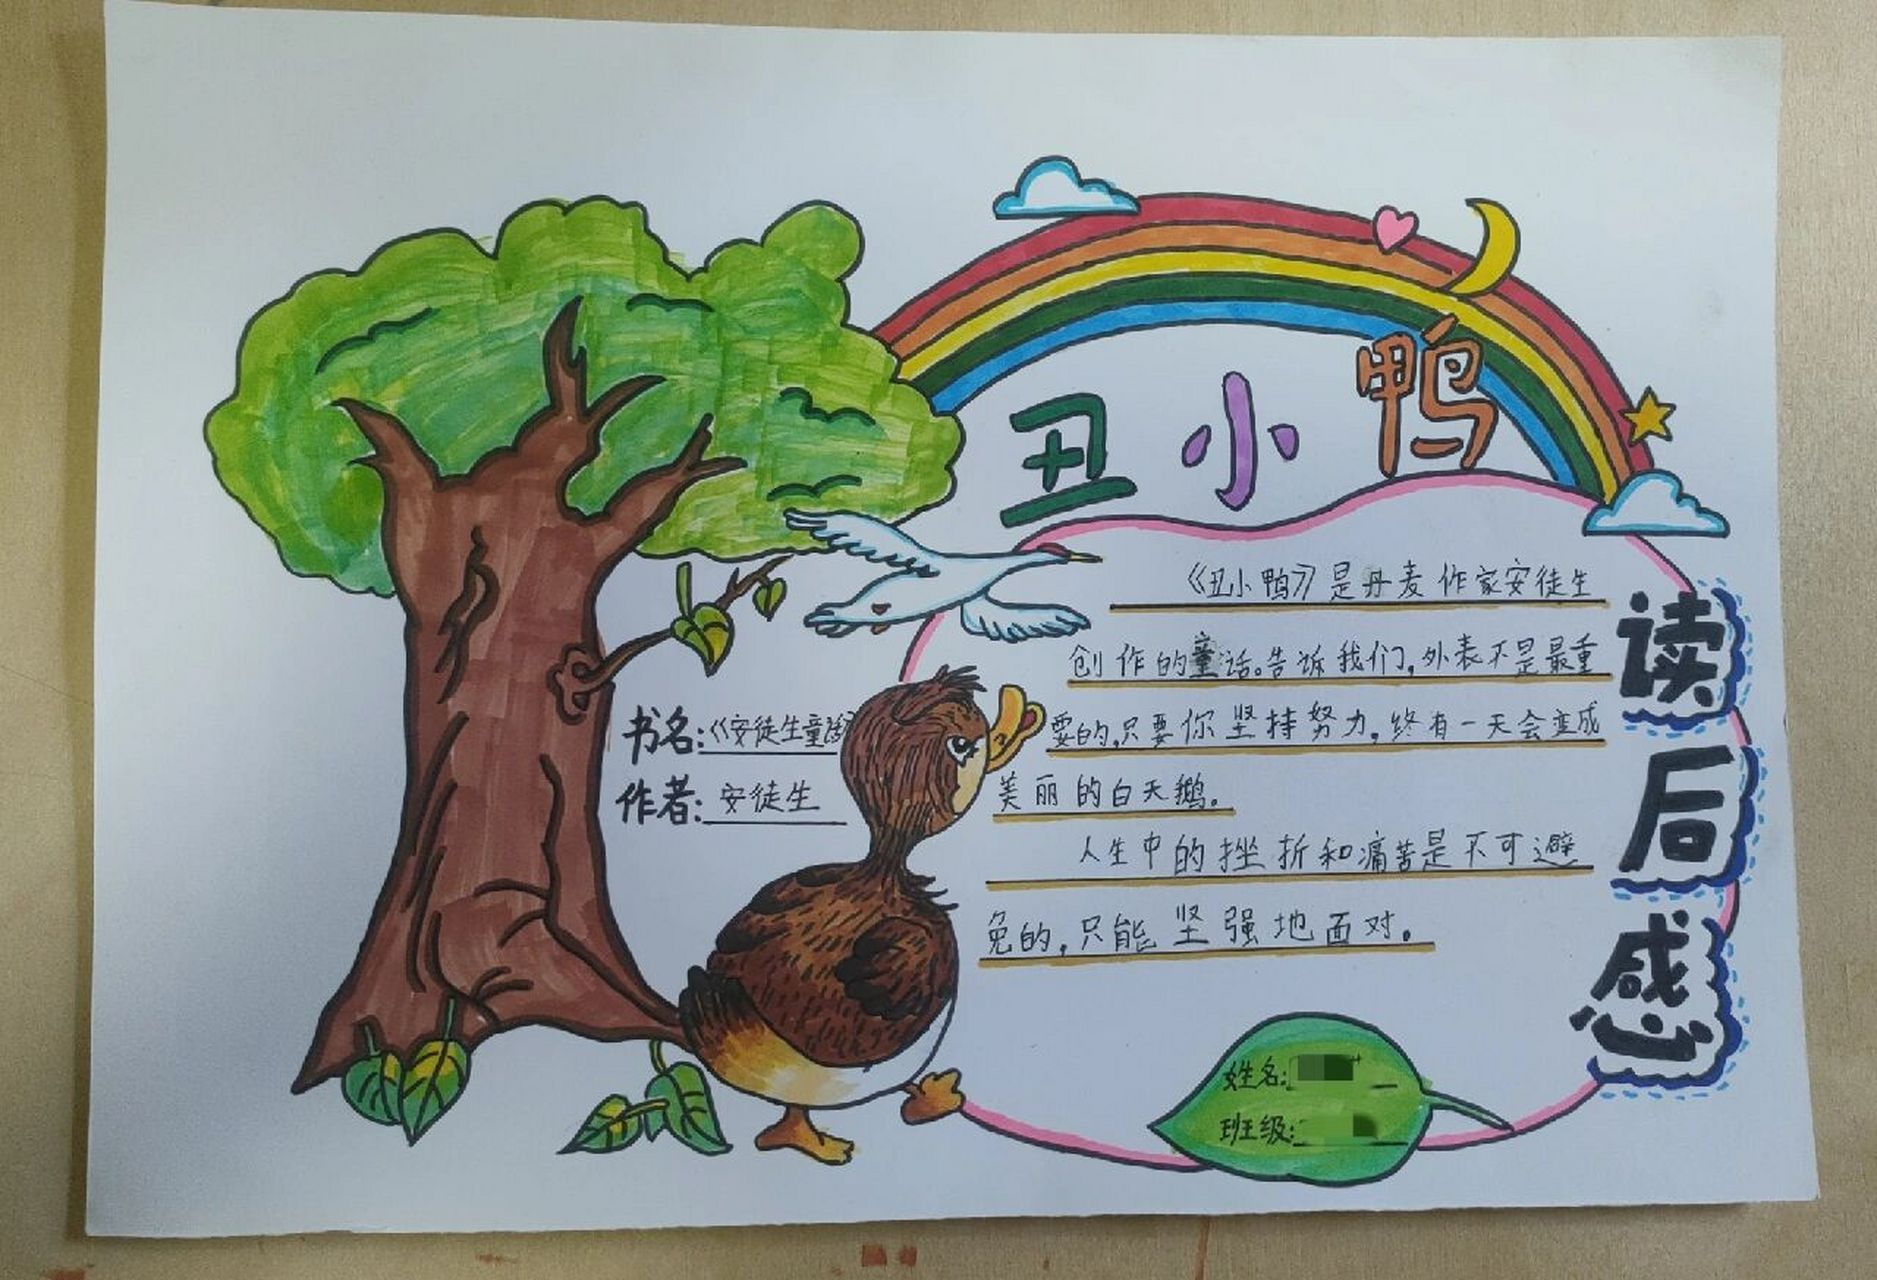 丑小鸭
《丑小鸭》是丹麦作家安徒生
创作的童话。告诉我们,外表不是最重
要的,只要你坚持努力,终有一天会变成
美丽的白天鹅。
人生中的挫折和痛苦是不可避
免的,只能坚强地面对。
读后感
书名:《安徒生童话
作者:安徒生
姓名:
班级: